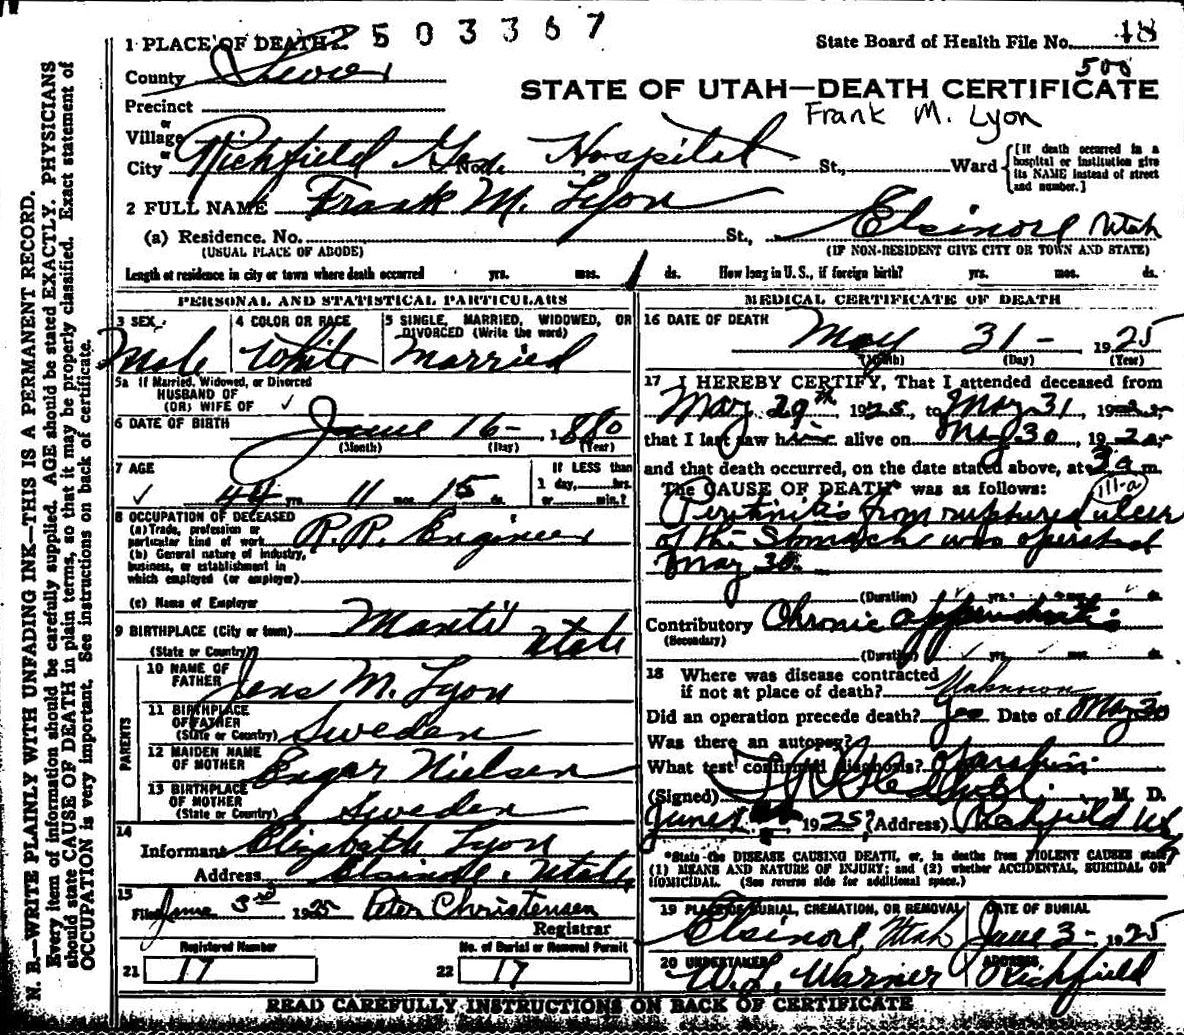 2503367
1 PLACE OF DEATH
State Board of Health File No. 48
500
County Sevier
STATE OF UTAH—DEATH CERTIFICATE
Frank M. Lyon
Precinct
or
Village
or
City Richfield Gen. No. Hospital St., Ward
[If death occurred in a hospital or institution give its NAME instead of street and number.]
2 FULL NAME Frank M. Lyon
(a) Residence. No. St., Elsinore Utah
(USUAL PLACE OF ABODE) (IF NON-RESIDENT GIVE CITY OR TOWN AND STATE)
Length of residence in city or town where death occurred yrs. mos. 1 ds. How long in U. S., if foreign birth? yrs. mos. ds.
PERSONAL AND STATISTICAL PARTICULARS
3 SEX Male
4 COLOR OR RACE White
5 SINGLE, MARRIED, WIDOWED, OR DIVORCED (Write the word) Married
5a If Married, Widowed, or Divorced
HUSBAND OF
(OR) WIFE OF ✓
6 DATE OF BIRTH June 16- 1880
(Month) (Day) (Year)
7 AGE ✓ 44 yrs. 11 mos. 15 ds.
If LESS than 1 day, hrs. or min.?
8 OCCUPATION OF DECEASED
(a) Trade, profession or particular kind of work R.R. Engineer
(b) General nature of industry, business, or establishment in which employed (or employer)
(c) Name of Employer
9 BIRTHPLACE (City or town) Manti
(State or Country) Utah
PARENTS
10 NAME OF FATHER Jens M. Lyon
11 BIRTHPLACE OF FATHER
(State or Country) Sweden
12 MAIDEN NAME OF MOTHER Engar Nielsen
13 BIRTHPLACE OF MOTHER
(State or Country) Sweden
14
Informant Elizabeth Lyon
Address Elsinore, Utah
15
Filed June 3rd 1925 Peter Christensen
Registrar
Registered Number
21 17
No. of Burial or Removal Permit
22 17
MEDICAL CERTIFICATE OF DEATH
16 DATE OF DEATH
May 31- 1925
(Month) (Day) (Year)
17 I HEREBY CERTIFY, That I attended deceased from
May 29th, 1925, to May 31, 1925,
that I last saw him alive on May 30, 1925,
and that death occurred, on the date stated above, at 3 a m.
The CAUSE OF DEATH* was as follows:
111-a
Peritonitis from ruptured ulcer
of the Stomach was operated
May 30.
(Duration) yrs. mos. ds.
Contributory Chronic appendicitis
(Secondary)
(Duration) yrs. mos. ds.
18 Where was disease contracted
if not at place of death? Unknown
Did an operation precede death? Yes Date of May 30
Was there an autopsy?
What test confirmed diagnosis? Operation
(Signed) M. D.
June 1, 1925 (Address) Richfield Ut
*State the DISEASE CAUSING DEATH, or, in deaths from VIOLENT CAUSES state
(1) MEANS AND NATURE OF INJURY; and (2) whether ACCIDENTAL, SUICIDAL OR
HOMICIDAL. (See reverse side for additional space.)
19 PLACE OF BURIAL, CREMATION, OR REMOVAL
Elsinore, Utah
DATE OF BURIAL
June 3- 1925
20 UNDERTAKER
W. L. Warner
ADDRESS
Richfield
READ CAREFULLY INSTRUCTIONS ON BACK OF CERTIFICATE
N. B.—WRITE PLAINLY WITH UNFADING INK—THIS IS A PERMANENT RECORD.
Every item of information should be carefully supplied. AGE should be stated EXACTLY. PHYSICIANS
should state CAUSE OF DEATH in plain terms, so that it may be properly classified. Exact statement of
OCCUPATION is very important. See instructions on back of certificate.